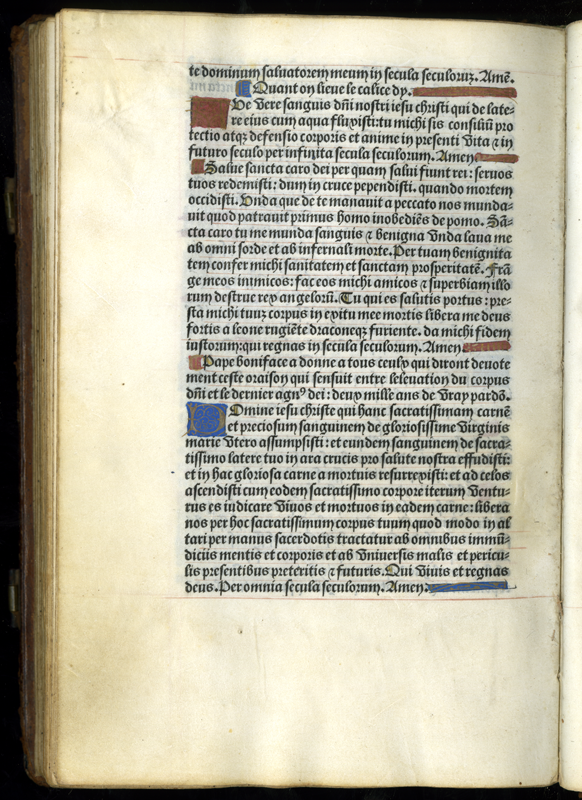 te dominum saluatorem meum in secula seculorum. Amē.
Quant on lieue le calice dy.
Ve Vere sanguis dn̄i nostri iesu christi qui de late-
re eius cum aqua fluxisti: tu michi sis consiliū pro
tectio atqꝫ defensio corporis et anime in presenti vita ⁊ in
futuro seculo per infinita secula seculorum. Amen
Salue sancta caro dei per quam salui fiunt rei: seruos
tuos redemisti: dum in cruce pependisti. quando mortem
occidisti. Vnda que de te manauit a peccato nos munda-
uit quod patrauit primus homo inobediēs de pomo. Sā-
cta caro tu me munda sanguis ⁊ benigna vnda laua me
ab omni sorde et ab infernali morte. Per tuam benignita
tem confer michi sanitatem et sanctam prosperitatē. Frā
ge meos inimicos: fac eos michi amicos ⁊ superbiam illo
rum destrue rex angelorū. Tu qui es salutis portus: pre-
sta michi tuuꝫ corpus in exitu mee mortis libera me deus
fortis a leone rugiēte draconeqꝫ furiente. da michi fidem
iustorum: qui regnas in secula seculorum. Amen
Pape boniface a donne a tous ceulx qui diront deuote
ment ceste oraison qui sensuit entre leleuation du corpus
dn̄i et le dernier agnꝰ dei: deux mille ans de vray pardō.
Domine iesu christe qui hanc sacratissimam carnē
et preciosum sanguinem de gloriosissime virginis
marie vtero assumpsisti: et eundem sanguinem de sacra-
tissimo latere tuo in ara crucis pro salute nostra effudisti:
et in hac gloriosa carne a mortuis resurrexisti: et ad celos
ascendisti cum eodem sacratissimo corpore iterum ventu-
rus es iudicare viuos et mortuos in eadem carne: libera
nos per hoc sacratissimum corpus tuum quod modo in al
tari per manus sacerdotis tractatur ab omnibus immū-
diciis mentis et corporis et ab vniuersis malis et pericu-
lis presentibus preteritis ⁊ futuris. Qui viuis et regnas
deus. Per omnia secula seculorum. Amen.